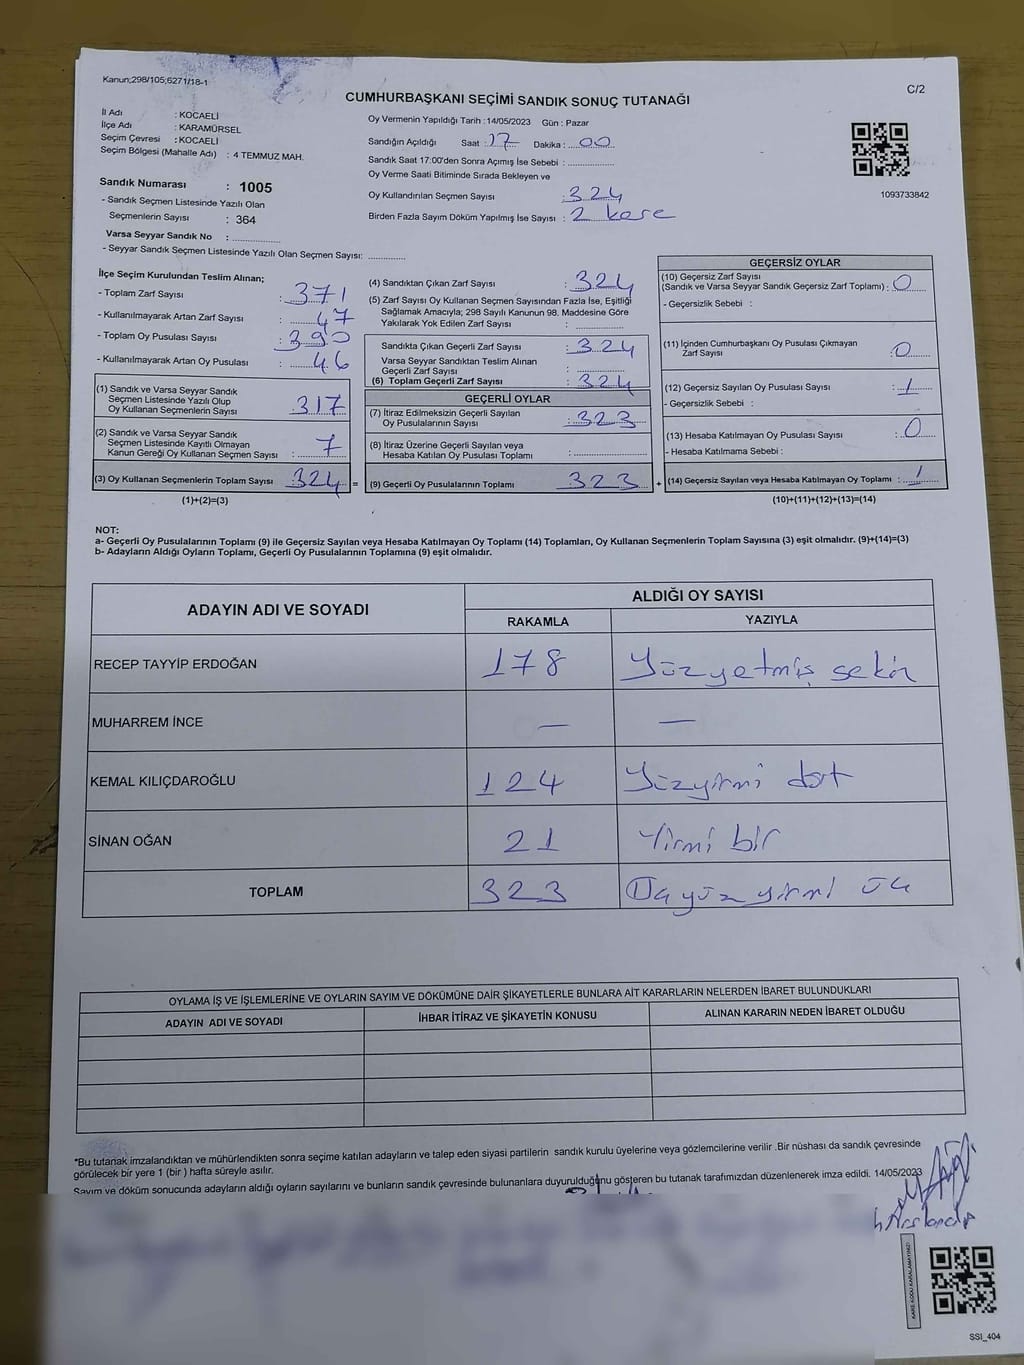 Kanun;298/105;6271/18-1
C/2
CUMHURBAŞKANI SEÇİMİ SANDIK SONUÇ TUTANAĞI
İl Adı : KOCAELİ
İlçe Adı : KARAMÜRSEL
Seçim Çevresi : KOCAELİ
Seçim Bölgesi (Mahalle Adı) : 4 TEMMUZ MAH.
Oy Vermenin Yapıldığı Tarih :14/05/2023 Gün : Pazar
Sandığın Açıldığı Saat : 17 Dakika : 00
Sandık Saat 17:00'den Sonra Açımış İse Sebebi :
Oy Verme Saati Bitiminde Sırada Bekleyen ve
Oy Kullandırılan Seçmen Sayısı : 324
Birden Fazla Sayım Döküm Yapılmış İse Sayısı : 2 kere
1093733842
Sandık Numarası : 1005
- Sandık Seçmen Listesinde Yazılı Olan
Seçmenlerin Sayısı : 364
Varsa Seyyar Sandık No :
- Seyyar Sandık Seçmen Listesinde Yazılı Olan Seçmen Sayısı:
İlçe Seçim Kurulundan Teslim Alınan;
- Toplam Zarf Sayısı : 371
- Kullanılmayarak Artan Zarf Sayısı : 47
- Toplam Oy Pusulası Sayısı : 390
- Kullanılmayarak Artan Oy Pusulası : 46
(1) Sandık ve Varsa Seyyar Sandık
Seçmen Listesinde Yazılı Olup
Oy Kullanan Seçmenlerin Sayısı : 317
(2) Sandık ve Varsa Seyyar Sandık
Seçmen Listesinde Kayıtlı Olmayan
Kanun Gereği Oy Kullanan Seçmen Sayısı : 7
(3) Oy Kullanan Seçmenlerin Toplam Sayısı : 324
(1)+(2)=(3)
(4) Sandıktan Çıkan Zarf Sayısı : 324
(5) Zarf Sayısı Oy Kullanan Seçmen Sayısından Fazla İse, Eşitliği
Sağlamak Amacıyla; 298 Sayılı Kanunun 98. Maddesine Göre
Yakılarak Yok Edilen Zarf Sayısı :
Sandıkta Çıkan Geçerli Zarf Sayısı : 324
Varsa Seyyar Sandıktan Teslim Alınan
Geçerli Zarf Sayısı :
(6) Toplam Geçerli Zarf Sayısı : 324
GEÇERLİ OYLAR
(7) İtiraz Edilmeksizin Geçerli Sayılan
Oy Pusulalarının Sayısı : 323
(8) İtiraz Üzerine Geçerli Sayılan veya
Hesaba Katılan Oy Pusulası Toplamı :
= (9) Geçerli Oy Pusulalarının Toplamı : 323
GEÇERSİZ OYLAR
(10) Geçersiz Zarf Sayısı
(Sandık ve Varsa Seyyar Sandık Geçersiz Zarf Toplamı) : 0
- Geçersizlik Sebebi :
(11) İçinden Cumhurbaşkanı Oy Pusulası Çıkmayan
Zarf Sayısı : 0
(12) Geçersiz Sayılan Oy Pusulası Sayısı : 1
- Geçersizlik Sebebi :
(13) Hesaba Katılmayan Oy Pusulası Sayısı : 0
- Hesaba Katılmama Sebebi :
+ (14) Geçersiz Sayılan veya Hesaba Katılmayan Oy Toplamı : 1
(10)+(11)+(12)+(13)=(14)
NOT:
a- Geçerli Oy Pusulalarının Toplamı (9) ile Geçersiz Sayılan veya Hesaba Katılmayan Oy Toplamı (14) Toplamları, Oy Kullanan Seçmenlerin Toplam Sayısına (3) eşit olmalıdır. (9)+(14)=(3)
b- Adayların Aldığı Oyların Toplamı, Geçerli Oy Pusulalarının Toplamına (9) eşit olmalıdır.
ADAYIN ADI VE SOYADI ALDIĞI OY SAYISI
RAKAMLA YAZIYLA
RECEP TAYYİP ERDOĞAN 178 Yüzyetmiş sekiz
MUHARREM İNCE — —
KEMAL KILIÇDAROĞLU 124 Yüzyirmi dört
SİNAN OĞAN 21 Yirmi bir
TOPLAM 323 Üçyüz yirmi üç
OYLAMA İŞ VE İŞLEMLERİNE VE OYLARIN SAYIM VE DÖKÜMÜNE DAİR ŞİKAYETLERLE BUNLARA AİT KARARLARIN NELERDEN İBARET BULUNDUKLARI
ADAYIN ADI VE SOYADI İHBAR İTİRAZ VE ŞİKAYETİN KONUSU ALINAN KARARIN NEDEN İBARET OLDUĞU
*Bu tutanak imzalandıktan ve mühürlendikten sonra seçime katılan adayların ve talep eden siyasi partilerin sandık kurulu üyelerine veya gözlemcilerine verilir .Bir nüshası da sandık çevresinde
görülecek bir yere 1 (bir ) hafta süreyle asılır.
Sayım ve döküm sonucunda adayların aldığı oyların sayılarını ve bunların sandık çevresinde bulunanlara duyurulduğunu gösteren bu tutanak tarafımızdan düzenlenerek imza edildi. 14/05/2023
KARE KODU KARALAMAYINIZ!
SSI_404